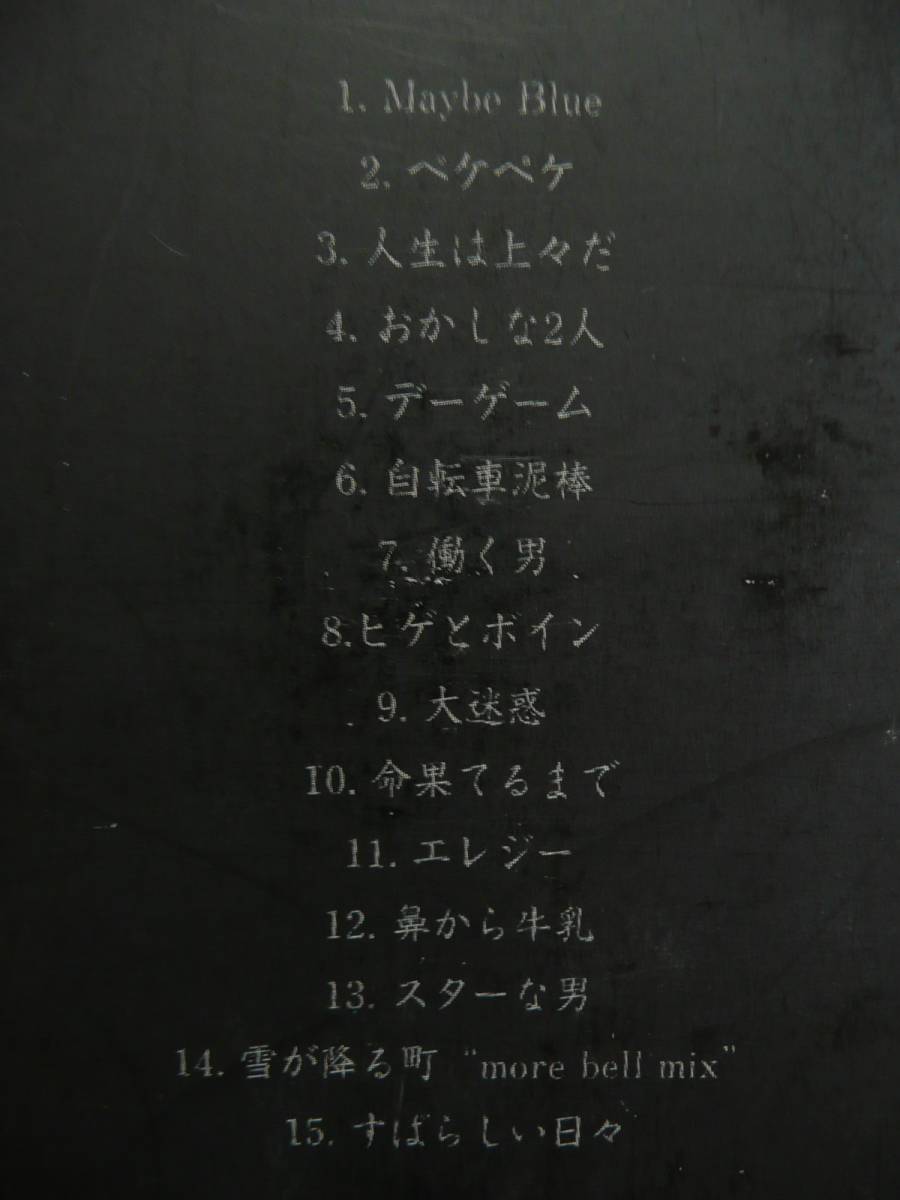 1. Maybe Blue
2. ペケペケ
3. 人生は上々だ
4. おかしな2人
5. デーゲーム
6. 自転車泥棒
7. 働く男
8.ヒゲとボイン
9. 大迷惑
10. 命果てるまで
11. エレジー
12. 鼻から牛乳
13. スターな男
14. 雪が降る町 "more bell mix"
15. すばらしい日々